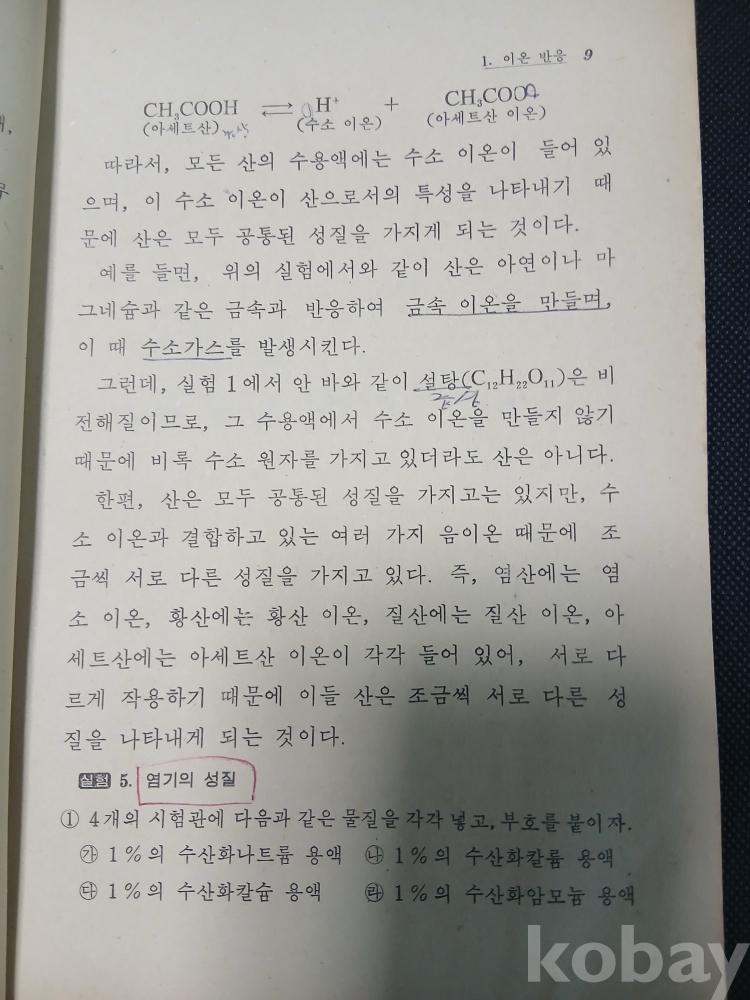 1. 이온 반응 9
CH₃COOH ⇄ H⁺ + CH₃COO
(아세트산) (수소 이온) (아세트산 이온)
따라서, 모든 산의 수용액에는 수소 이온이 들어 있
으며, 이 수소 이온이 산으로서의 특성을 나타내기 때
문에 산은 모두 공통된 성질을 가지게 되는 것이다.
예를 들면, 위의 실험에서와 같이 산은 아연이나 마
그네슘과 같은 금속과 반응하여 금속 이온을 만들며,
이 때 수소가스를 발생시킨다.
그런데, 실험 1에서 안 바와 같이 설탕(C₁₂H₂₂O₁₁)은 비
전해질이므로, 그 수용액에서 수소 이온을 만들지 않기
때문에 비록 수소 원자를 가지고 있더라도 산은 아니다.
한편, 산은 모두 공통된 성질을 가지고는 있지만, 수
소 이온과 결합하고 있는 여러 가지 음이온 때문에 조
금씩 서로 다른 성질을 가지고 있다. 즉, 염산에는 염
소 이온, 황산에는 황산 이온, 질산에는 질산 이온, 아
세트산에는 아세트산 이온이 각각 들어 있어, 서로 다
르게 작용하기 때문에 이들 산은 조금씩 서로 다른 성
질을 나타내게 되는 것이다.
실험 5. 염기의 성질
① 4개의 시험관에 다음과 같은 물질을 각각 넣고, 부호를 붙이자.
㉮ 1%의 수산화나트륨 용액 ㉯ 1%의 수산화칼륨 용액
㉰ 1%의 수산화칼슘 용액 ㉱ 1%의 수산화암모늄 용액
kobay